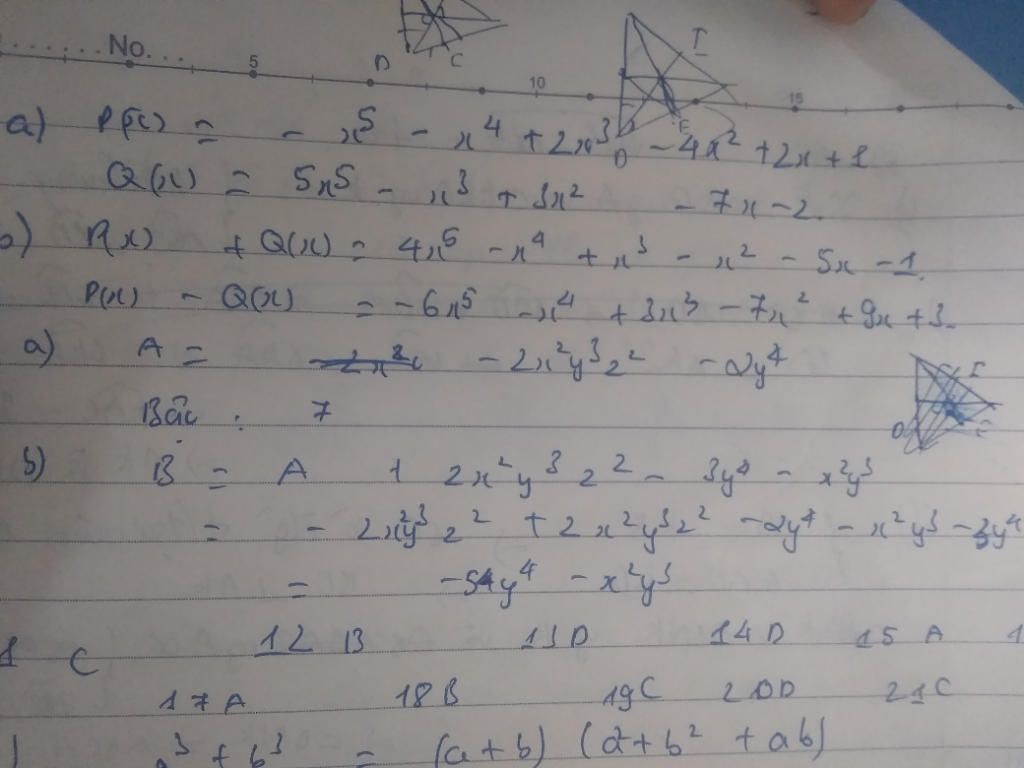 No. . . .
5 10 15
D C I
D E
a) P(x) = - x⁵ - x⁴ + 2x³ - 4x² + 2x + 1
Q(x) = 5x⁵ - x³ + 3x² - 7x - 2.
b) P(x) + Q(x) = 4x⁵ - x⁴ + x³ - x² - 5x - 1.
P(x) - Q(x) = - 6x⁵ - x⁴ + 3x³ - 7x² + 9x + 3.
a) A = - 2x²y³z² - 2y⁴
I
Bậc : 7
D E
b) B = A + 2x²y³z² - 3y⁴ - x²y³
= - 2x²y³z² + 2x²y³z² - 2y⁴ - x²y³ - 3y⁴
= - 5y⁴ - x²y³
1 C 12 B 13 D 14 D 15 A 1
17 A 18 B 19 C 20 D 21 C
³ + b³ = (a + b) (a² + b² + ab)